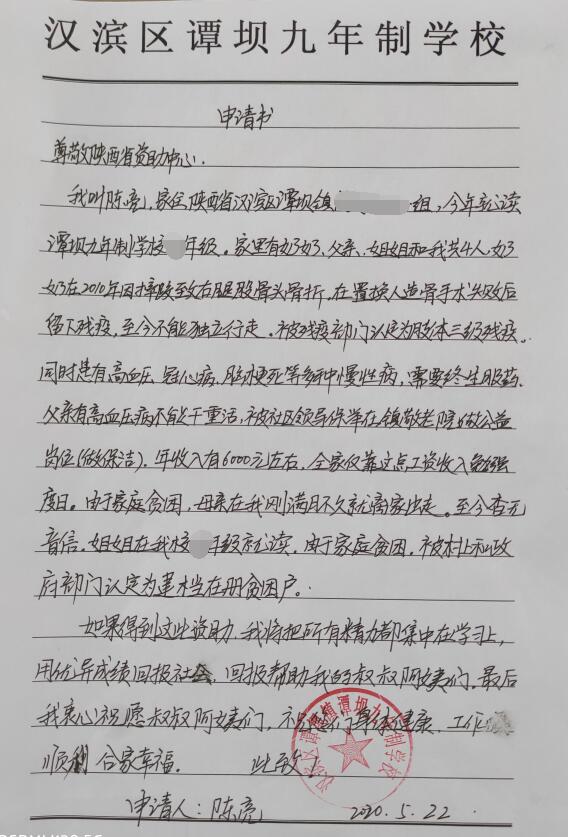 汉滨区谭坝九年制学校
申请书
尊敬陕西省资助中心:
我叫陈亮,家住陕西省汉滨区谭坝镇 组,今年就读
谭坝九年制学校 年级。家里有奶奶、父亲、姐姐和我共4人,奶
奶在2010年因摔跤至右腿股骨头骨折,在置换人造骨手术失败后
留下残疫,至今不能独立行走。被残疫部门认定为肢体三级残疫。
同时患有高血压、冠心病、脑梗死等多种慢性病,需要终生服药。
父亲有高血压病不能干重活,被社区领导保举在镇敬老院做公益
岗位(做保洁).年收入有6000元左右,全家仅靠这点工资收入勉强
度日。由于家庭贫困,母亲在我刚满月不久就离家出走。至今杳无
音信.姐姐在我校 年级就读.由于家庭贫困.被村上和政
府部门认定为建档在册贫困户。
如果得到这些资助.我将把所有精力都集中在学习上,
用优异成绩回报社会,回报帮助我的叔叔阿姨们.最后
我衷心祝愿叔叔阿姨们, 们身体健康、工作
顺利 合家幸福. 此致!
申请人:陈亮 2020.5.22
汉滨区谭坝镇谭坝九年制学校